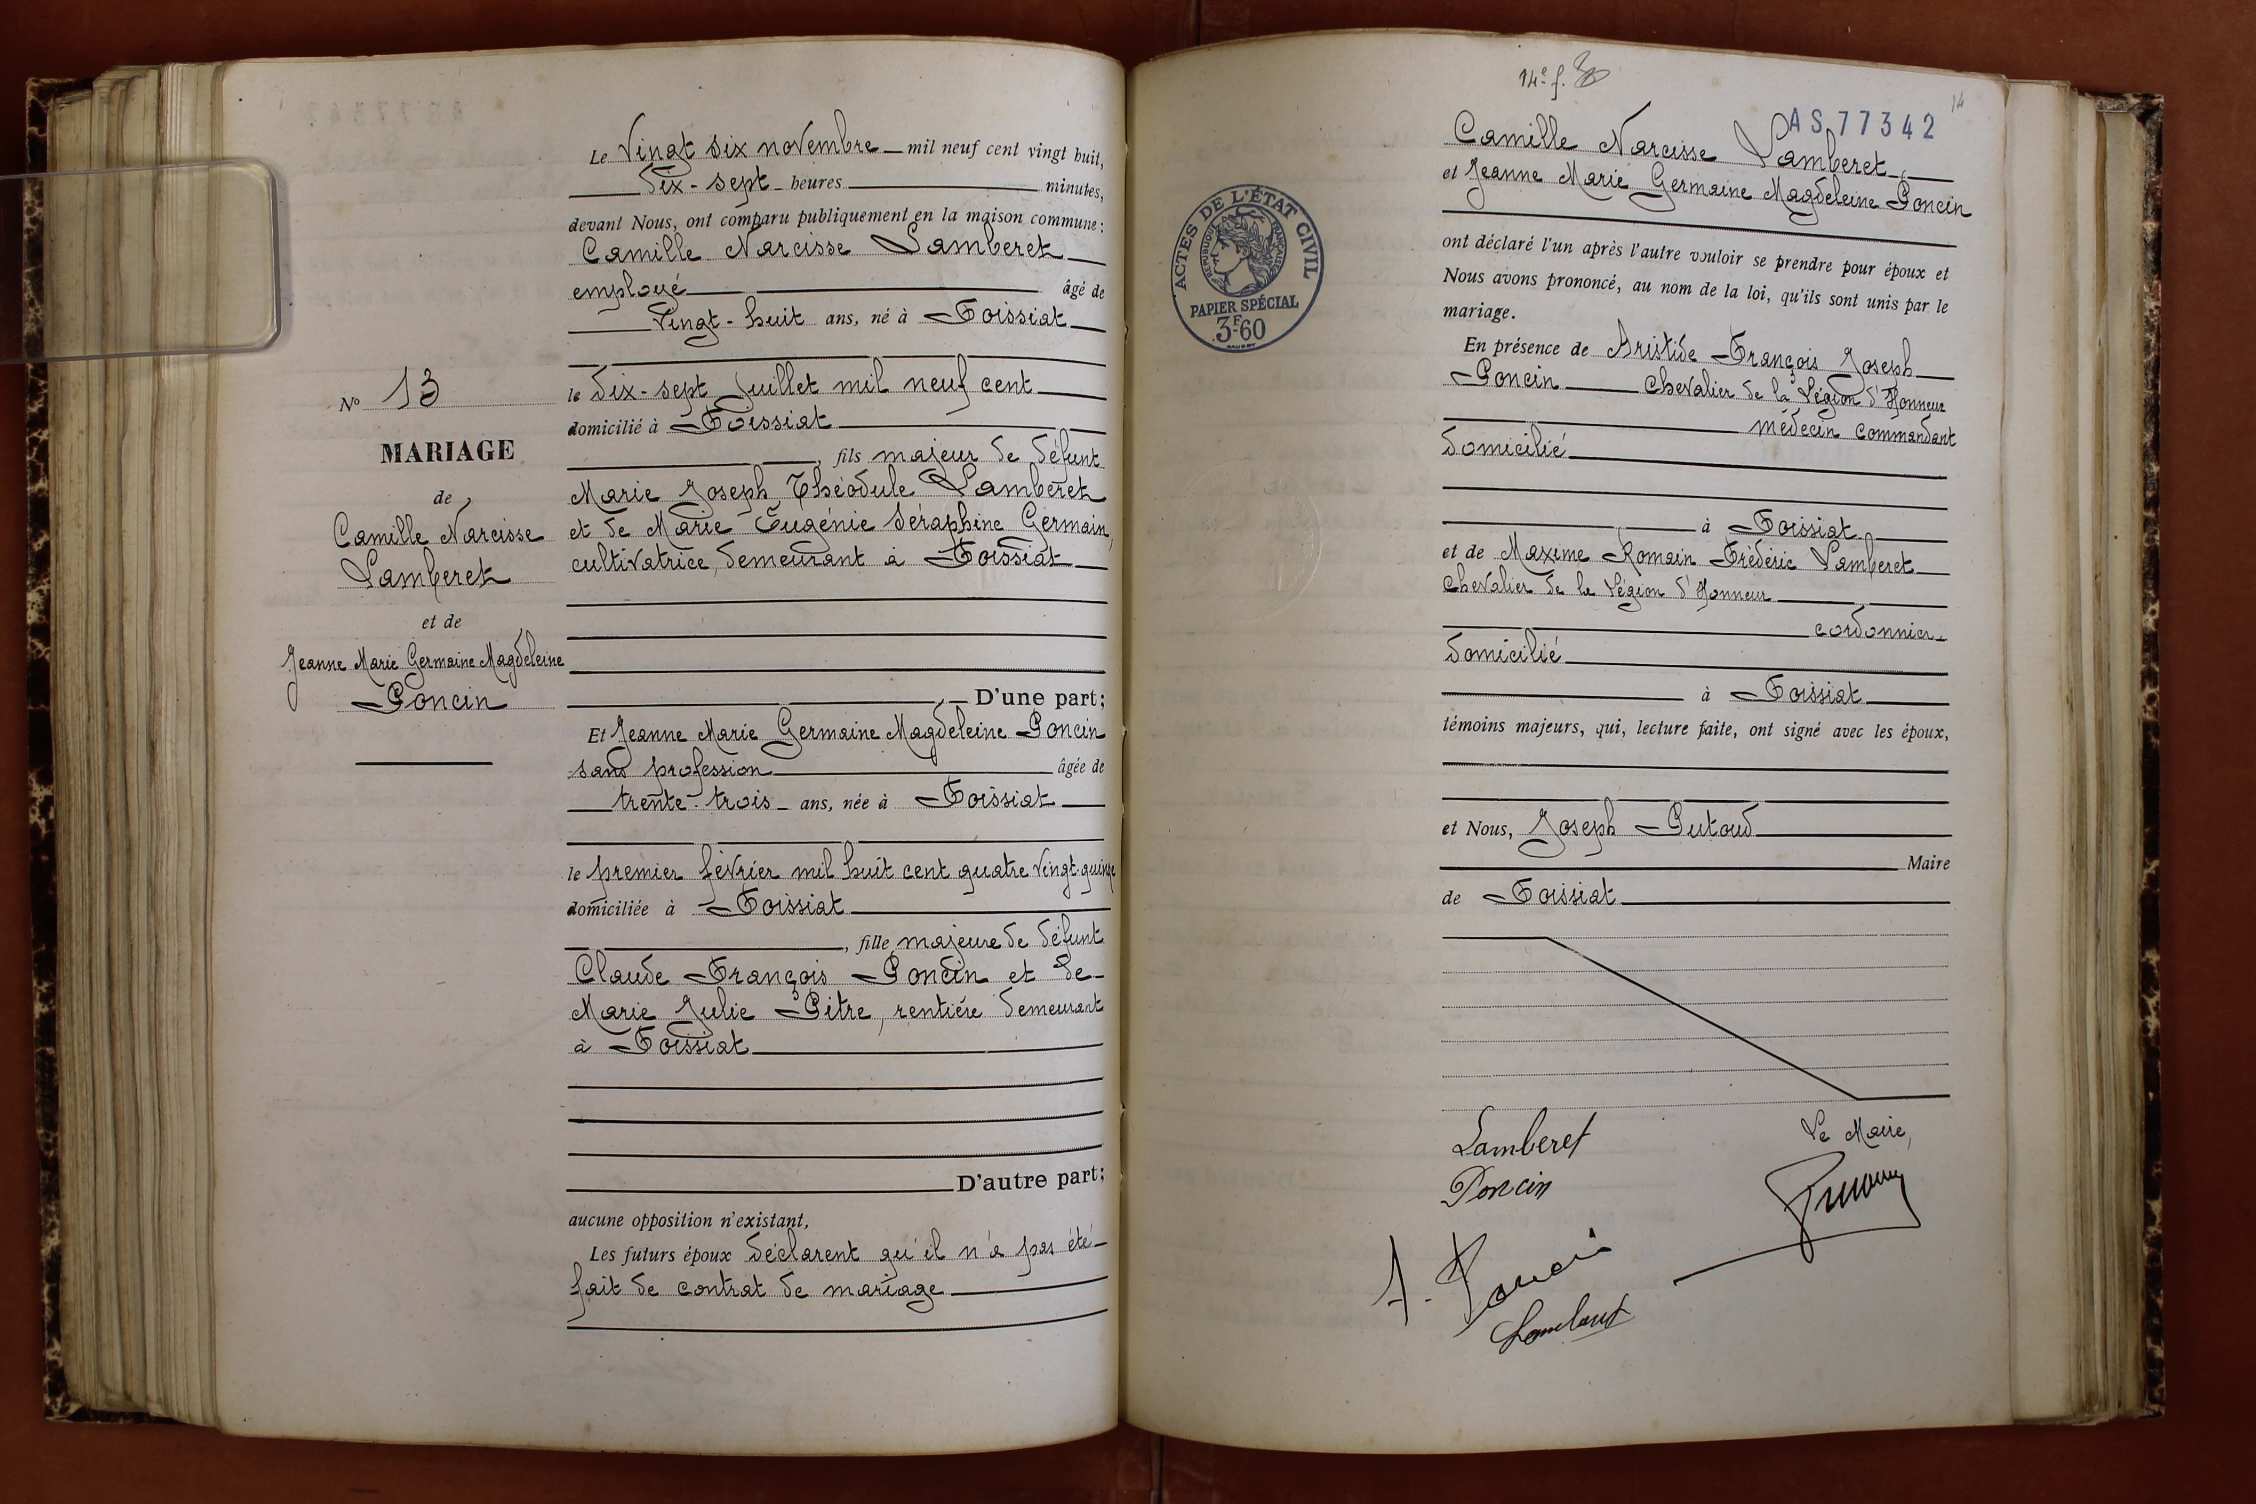 Le Vingt six novembre mil neuf cent vingt huit,
Dix-sept heures minutes,
devant Nous, ont comparu publiquement en la maison commune :
Camille Narcisse Lamberet
employé âgé de
Vingt-huit ans, né à Foissiat
le Dix-sept Juillet mil neuf cent
domicilié à Foissiat
, fils majeur de défunt
Marie Joseph Théodule Lamberet
et de Marie Eugénie Séraphine Germain,
cultivatrice, demeurant à Foissiat
D'une part ;
Et Jeanne Marie Germaine Magdeleine Poncin
sans profession âgée de
trente-trois ans, née à Foissiat
le premier février mil huit cent quatre vingt-quinze
domiciliée à Foissiat
, fille majeure de défunt
Claude François Poncin et de
Marie Julie Pitre, rentière demeurant
à Foissiat
D'autre part ;
aucune opposition n'existant,
Les futurs époux déclarent qu'il n'a pas été
fait de contrat de mariage
N° 13
MARIAGE
de
Camille Narcisse
Lamberet
et de
Jeanne Marie Germaine Magdeleine
Poncin
14e f.
14
AS 77342
ACTES DE L'ÉTAT CIVIL
REPUBLIQUE FRANÇAISE
PAPIER SPÉCIAL
3F60
Camille Narcisse Lamberet
et Jeanne Marie Germaine Magdeleine Poncin
ont déclaré l'un après l'autre vouloir se prendre pour époux et
Nous avons prononcé, au nom de la loi, qu'ils sont unis par le
mariage.
En présence de Aristide François Joseph
Poncin Chevalier de la Légion d'Honneur
médecin commandant
domicilié
à Foissiat
et de Maxime Romain Frédéric Lamberet
Chevalier de la Légion d'Honneur
cordonnier
domicilié
à Foissiat
témoins majeurs, qui, lecture faite, ont signé avec les époux,
et Nous, Joseph Putoud
Maire
de Foissiat
Lamberet
Poncin
Le Maire,
A. Poncin
Lamberet